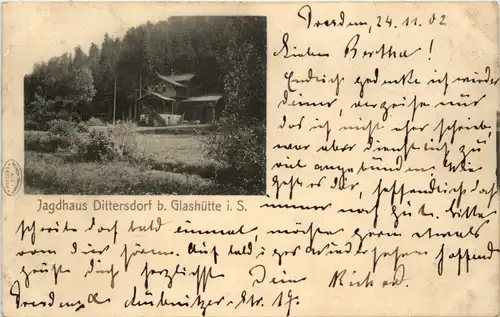 Dresden, 24.11.02
Lieben Bertha!
Endlich gedenke ich wieder
deiner, verzeihe mir
das ich nicht eher schrieb
war aber dienstlich zu
viel angebunden. Wie
geht es dir, hoffentlich doch
immer noch gut. Bitte
schreibe doch bald einmal, möchte gern etwas
von dir hören. Auf baldiges Wiedersehen hoffend
grüßt dich herzlichst Dein Richard.
Dresden Lübnitzer-Str. 17.
Jagdhaus Dittersdorf b. Glashütte i. S.